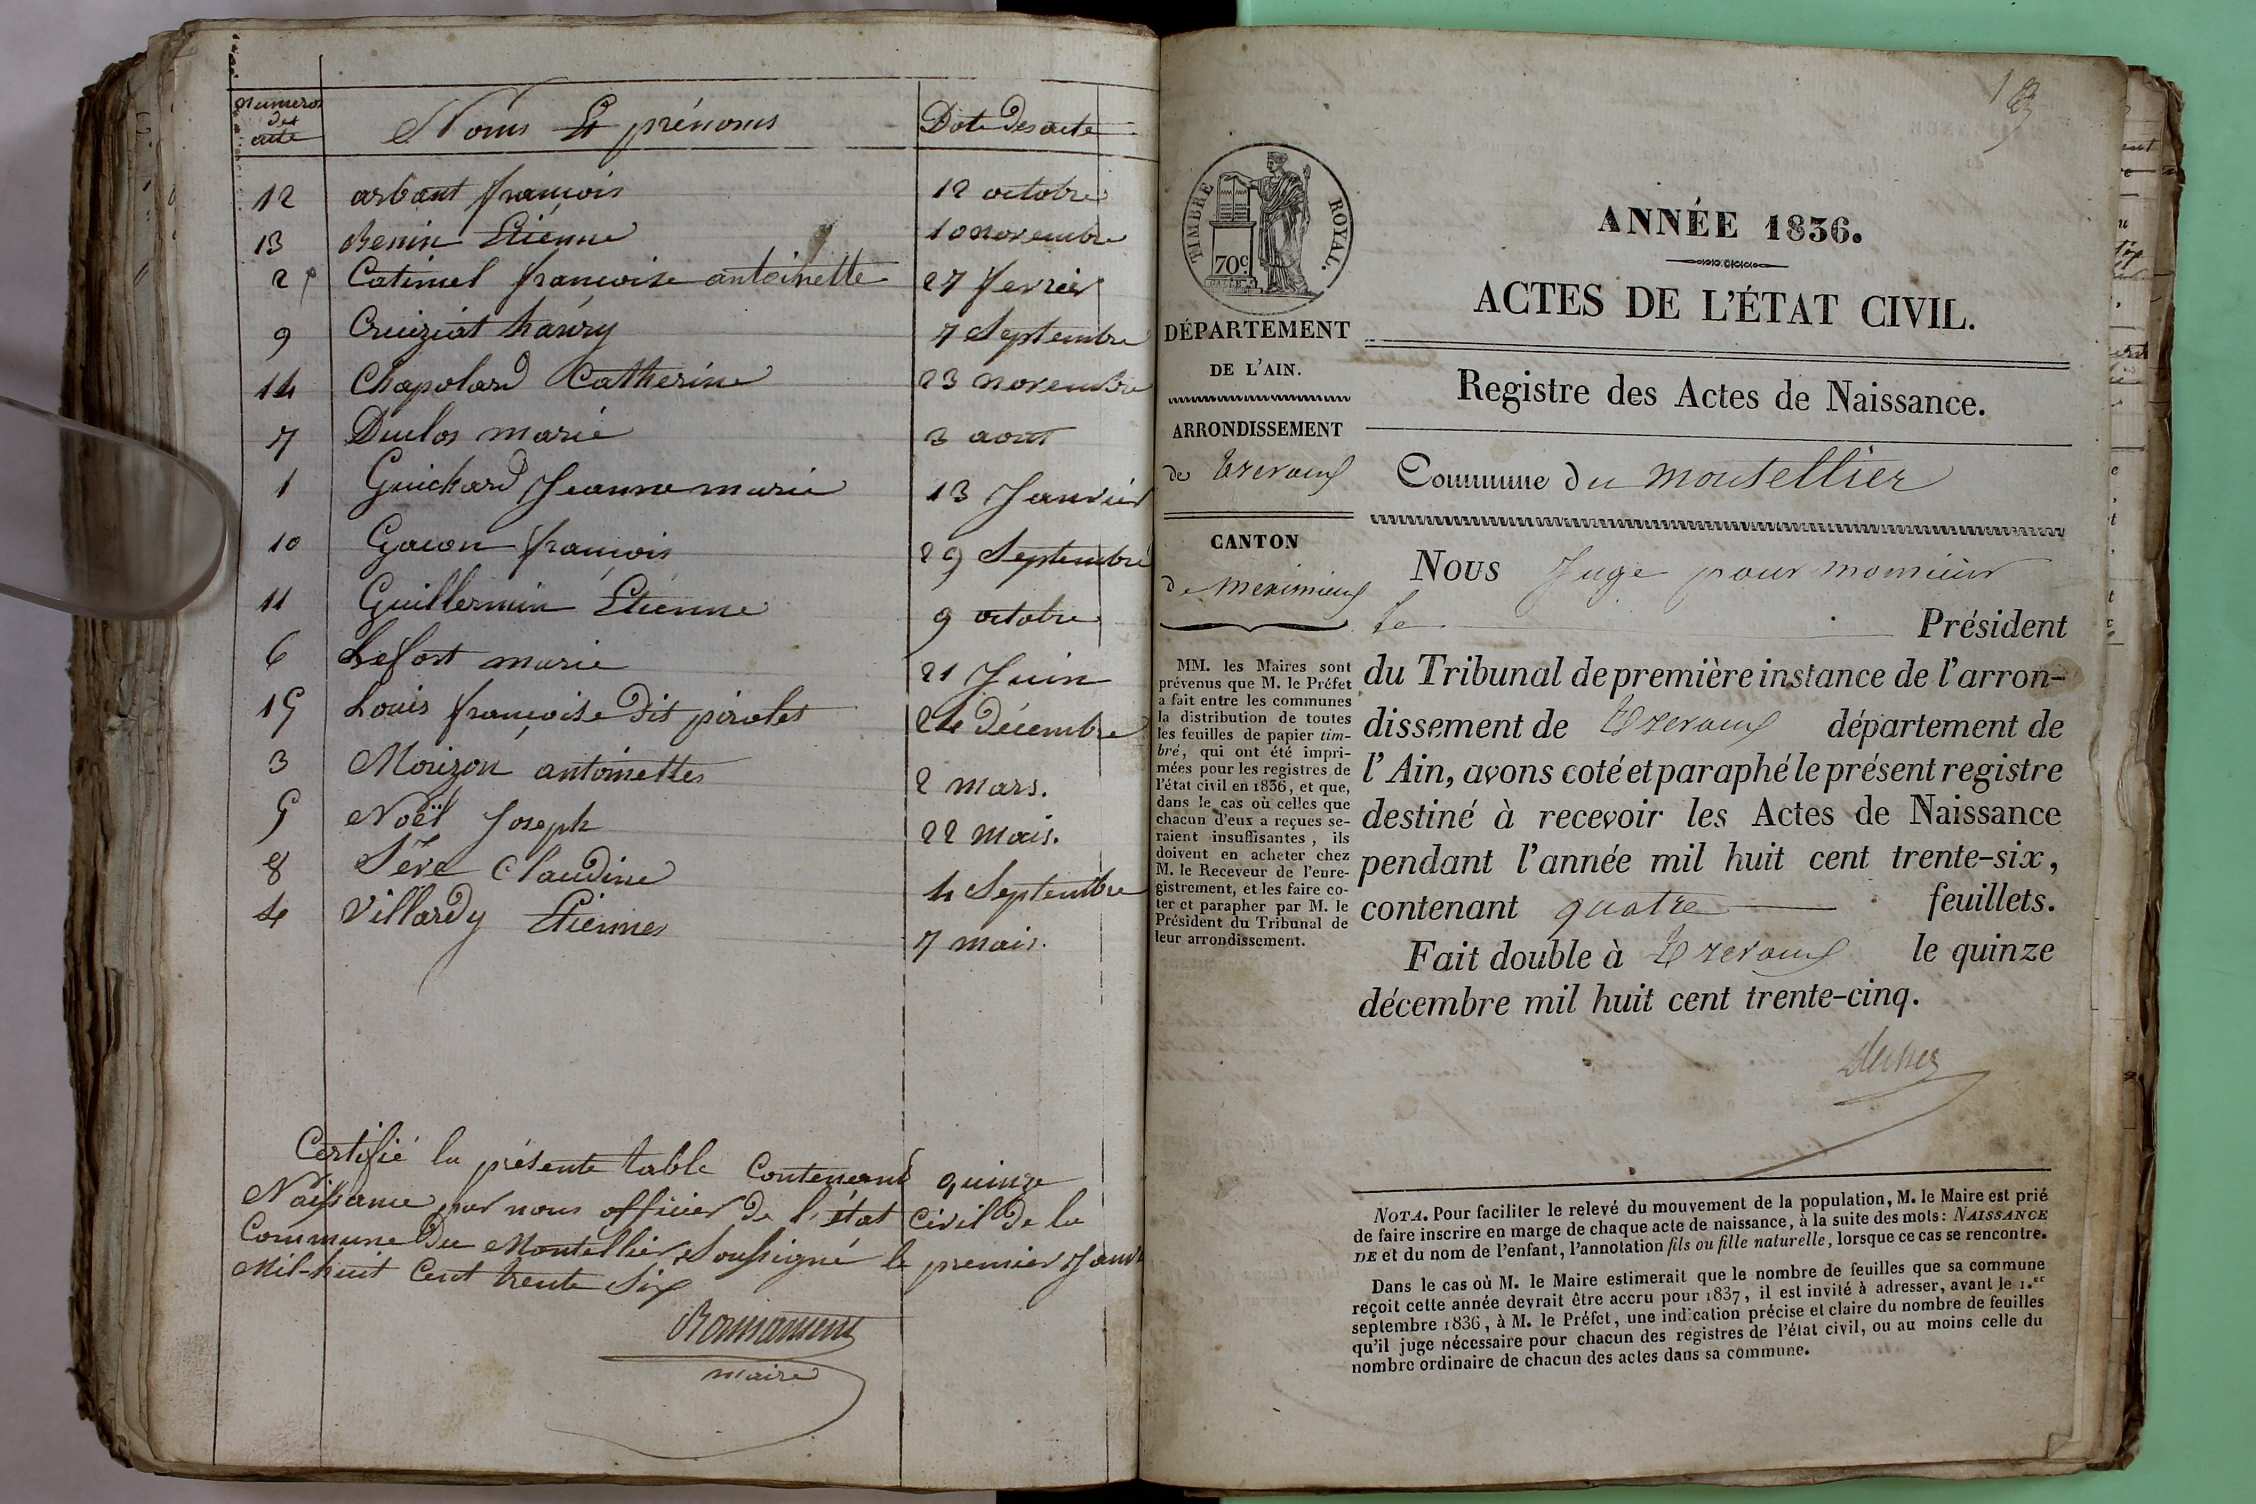 numero des acte
Noms Et prénoms
Date des acte
12 arbant françois 12 octobre
13 Benin Etiénne 10 novembre
2 Catimel françoise antoinette 27 fevrier
9 Cruiziat haury 7 Septembre
14 Chapolard Catherine 23 novembre
7 Duclos marie 3 aout
1 Guichard Jeanne marie 13 Janvier
10 Gacon françois 29 Septembre
11 Guillermin Etienne 9 octobre
6 Lefort marie 21 Juin
15 Louis françoise dit pirolet 24 décembre
3 Morizon antoinettes 2 mars.
5 Noël Joseph 22 mais.
8 Séve Claudine 4 Septembre
4 Villardy Etiennes 7 mais.
Certifié la présente table Contenant quinze
Naissance par nous officier de l'état Civil de la
Commune Du Montellier, Soussigné le premier Janv
Mil-huit Cent trente Six
maire
TIMBRE ROYAL.
70c
DÉPARTEMENT
DE L'AIN.
ARRONDISSEMENT
de trevoux
CANTON
de meximieux
MM. les Maires sont
prévenus que M. le Préfet
a fait entre les communes
la distribution de toutes
les feuilles de papier tim-
bré, qui ont été impri-
mées pour les registres de
l'état civil en 1836, et que,
dans le cas où celles que
chacun d'eux a reçues se-
raient insuffisantes, ils
doivent en acheter chez
M. le Receveur de l'enre-
gistrement, et les faire co-
ter et parapher par M. le
Président du Tribunal de
leur arrondissement.
ANNÉE 1836.
ACTES DE L'ÉTAT CIVIL.
Registre des Actes de Naissance.
Commune du montellier
Nous Juge pour monsieur
le Président
du Tribunal de première instance de l'arron-
dissement de Trevoux département de
l'Ain, avons coté et paraphé le présent registre
destiné à recevoir les Actes de Naissance
pendant l'année mil huit cent trente-six,
contenant quatre feuillets.
Fait double à Trevoux le quinze
décembre mil huit cent trente-cinq.
NOTA. Pour faciliter le relevé du mouvement de la population, M. le Maire est prié
de faire inscrire en marge de chaque acte de naissance, à la suite des mots: NAISSANCE
DE et du nom de l'enfant, l'annotation fils ou fille naturelle, lorsque ce cas se rencontre.
Dans le cas où M. le Maire estimerait que le nombre de feuilles que sa commune
reçoit cette année devrait être accru pour 1837, il est invité à adresser, avant le 1.er
septembre 1836, à M. le Préfet, une indication précise et claire du nombre de feuilles
qu'il juge nécessaire pour chacun des registres de l'état civil, ou au moins celle du
nombre ordinaire de chacun des actes dans sa commune.